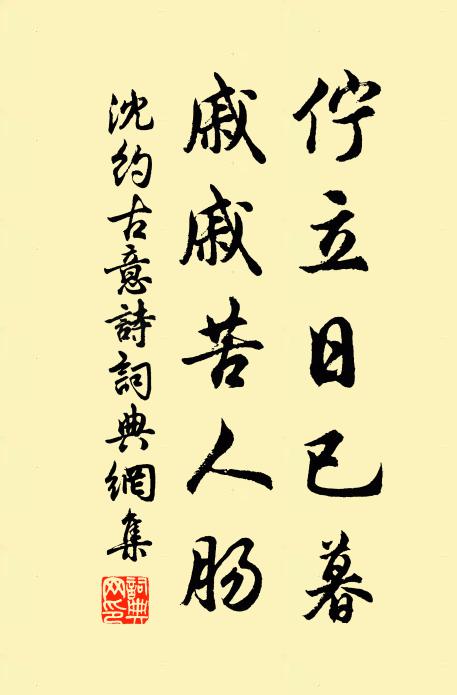 伫立日已暮
戚戚苦人肠
沈约古意詩詞典網集
詞典网印